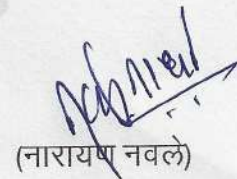 (नारायण नवले)